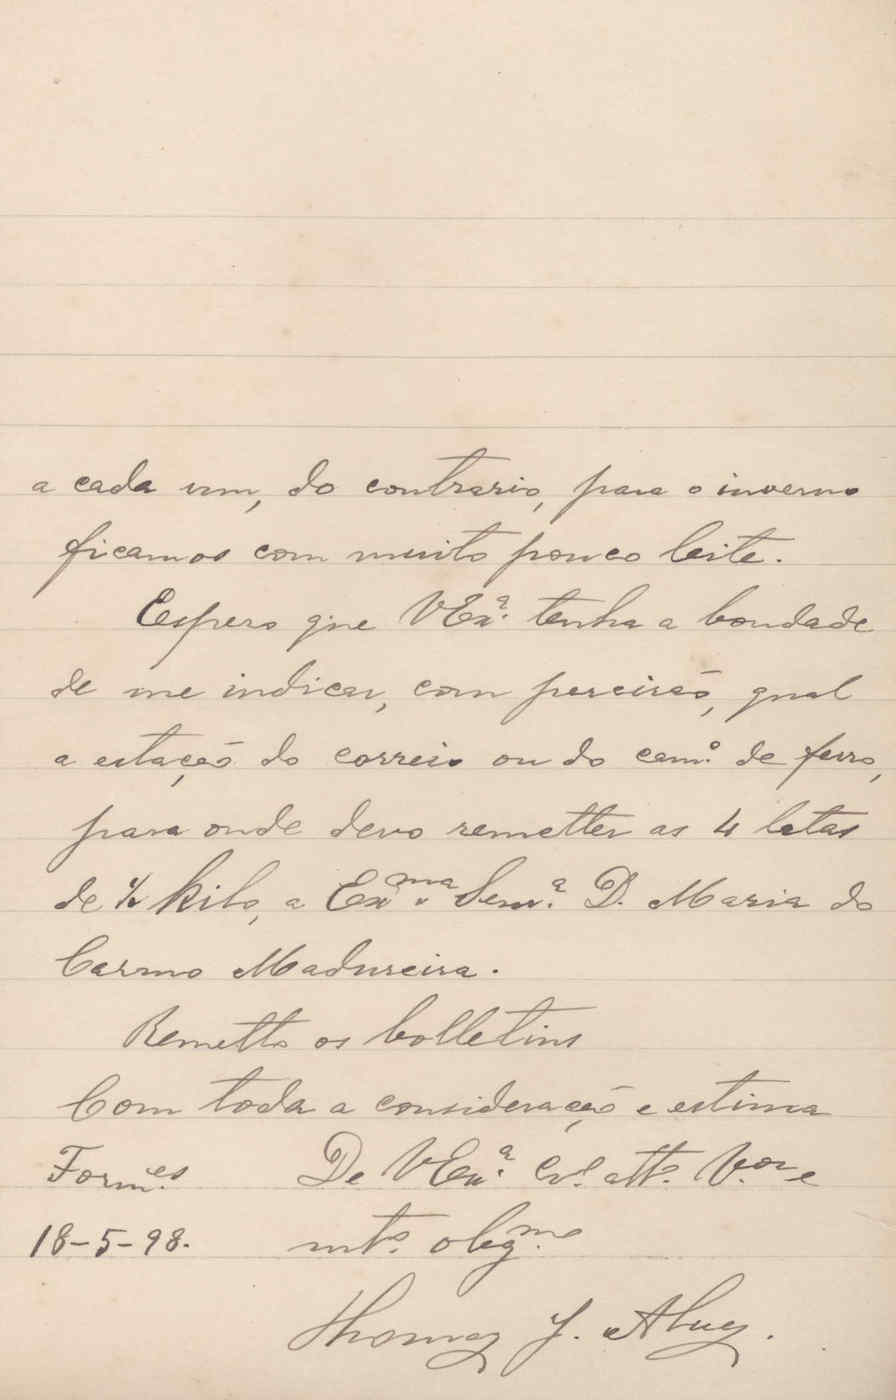 a cada um, do contrario, para o inverno
ficamos com muito pouco leite.
Espero que VExª. tenha a bondade
de me indicar, com percisão, qual
a estação do correio ou do camº. de ferro,
para onde devo remetter as 4 latas
de ½ kilo, a Exma. Senrª. D. Maria do
Carmo Madureira.
Remetto os bolletins
Com toda a consideração e estima
Formes. De VExª. Crº. attº. Vor. e
18-5-98. mtº. obgmo.
Thomaz J.